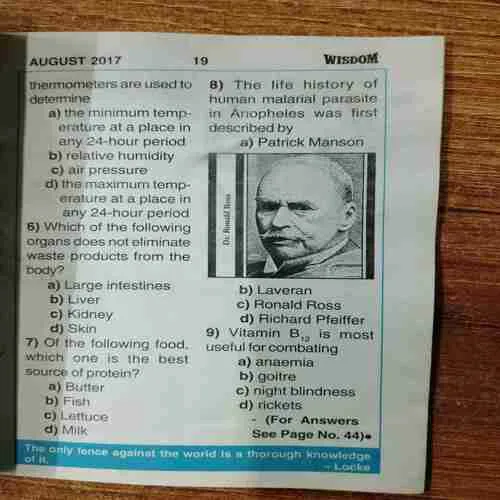 AUGUST 2017 19 WISDOM
thermometers are used to
determine
a) the minimum temp-
erature at a place in
any 24-hour period
b) relative humidity
c) air pressure
d) the maximum temp-
erature at a place in
any 24-hour period
6) Which of the following
organs does not eliminate
waste products from the
body?
a) Large intestines
b) Liver
c) Kidney
d) Skin
7) Of the following food,
which one is the best
source of protein?
a) Butter
b) Fish
c) Lettuce
d) Milk
8) The life history of
human malarial parasite
in Anopheles was first
described by
a) Patrick Manson
Dr. Ronald Ross
b) Laveran
c) Ronald Ross
d) Richard Pfeiffer
9) Vitamin B12 is most
useful for combating
a) anaemia
b) goitre
c) night blindness
d) rickets
- (For Answers
See Page No. 44)●
The only fence against the world is a thorough knowledge
of it.
– Locke